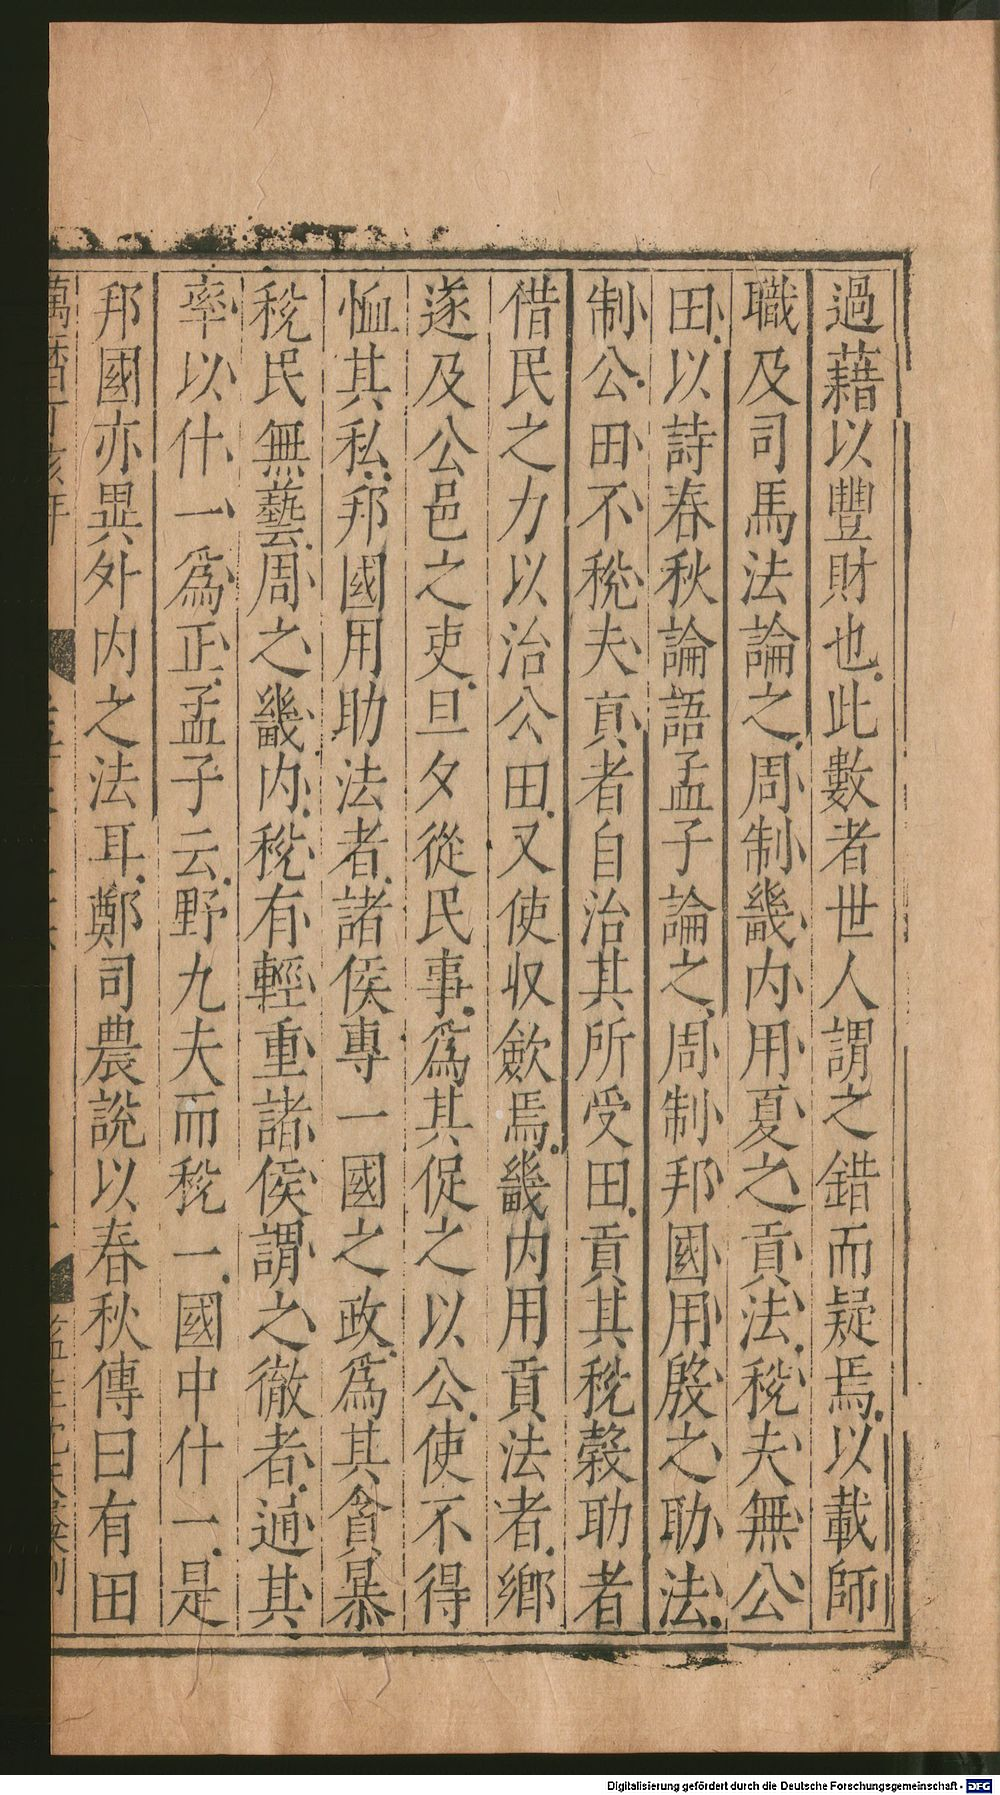 過藉以豐財也此數者世人謂之錯而疑焉以載師
職及司馬法論之周制畿内用夏之貢法稅夫無公
田以詩春秋論語孟子論之周制邦國用殷之助法
制公田不稅夫貢者自治其所受田貢其稅穀助者
借民之力以治公田又使收斂焉畿内用貢法者鄉
遂及公邑之吏旦夕從民事爲其促之以公使不得
恤其私邦國用助法者諸侯專一國之政爲其貪暴
稅民無藝周之畿内稅有輕重諸侯謂之徹者通其
率以什一爲正孟子云野九夫而稅一國中什一是
邦國亦異外内之法耳鄭司農說以春秋傳曰有田
萬曆丁亥年
Digitalisierung gefördert durch die Deutsche Forschungsgemeinschaft - DFG